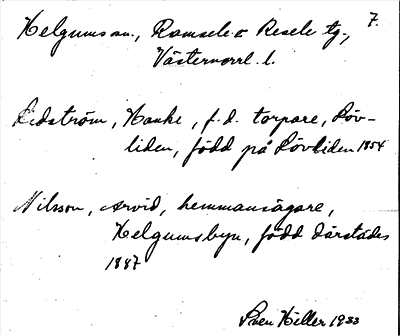 7.
Helgums sn., Ramsele o Resele tg.,
Västernorrl. l.
Lidström, Manke, f.d. torpare, Löv-
liden, född på Lövliden 1854
Nilsson, Arvid, hemmansägare,
Helgumsbyn, född därstädes
1887
Sven Hiller 1933